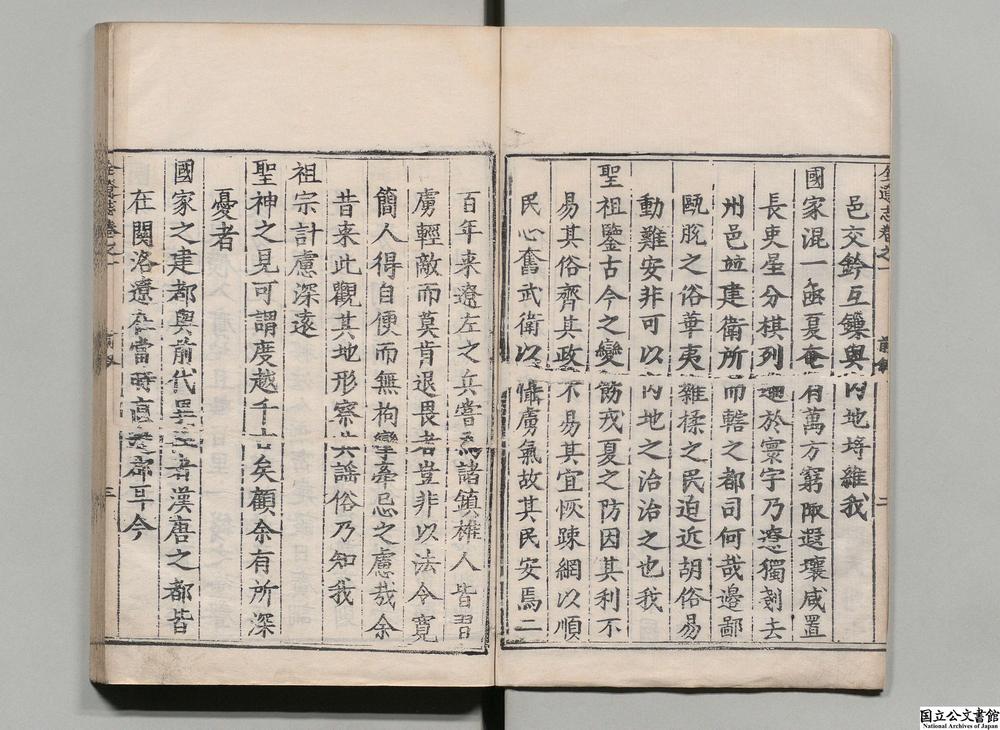 邑交錯互鑣與内地埒維我
國家混一函夏奄有萬方窮陬遐壤咸置
長吏星分棋列遍於寰宇乃遼獨剗去
州邑並建衛所而轄之都司何哉邊鄙
甌脫之俗華夷雜揉之民迫近胡俗易
動難安非可以内地之治治之也我
聖祖鑒古今之變飭戎夏之防因其利不
易其俗齊其政不易其宜恢疎網以順
民心奮武衛以懾虜氣故其民安焉二
百年来遼左之兵嘗爲諸鎮雄人皆習
虜輕敵而莫肯退畏者豈非以法令寛
簡人得自便而無拘攣牽忌之慮哉余
昔来此觀其地形察其謡俗乃知我
祖宗計慮深遠
聖神之見可謂度越千古矣顧余有所深
憂者
國家之建都與前代異者漢唐之都皆
在関洛遼在當時為郡耳今
全遼志卷之一
二
全遼志卷之一
三
国立公文書館
National Archives of Japan